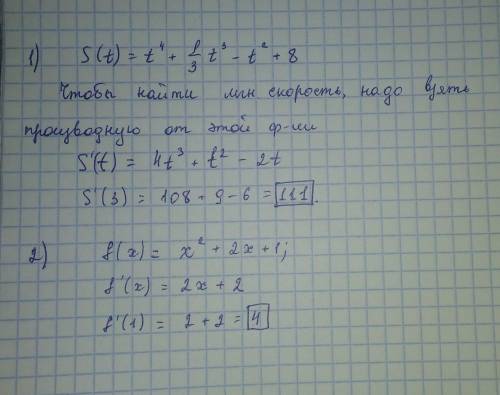 1) S(t) = t⁴ + 1/3 t³ - t² + 8
Чтобы найти мгн скорость, надо взять
производную от этой ф-ии
S'(t) = 4t³ + t² - 2t
S'(3) = 108 + 9 - 6 = 111.
2) f(x) = x² + 2x + 1;
f'(x) = 2x + 2
f'(1) = 2 + 2 = 4